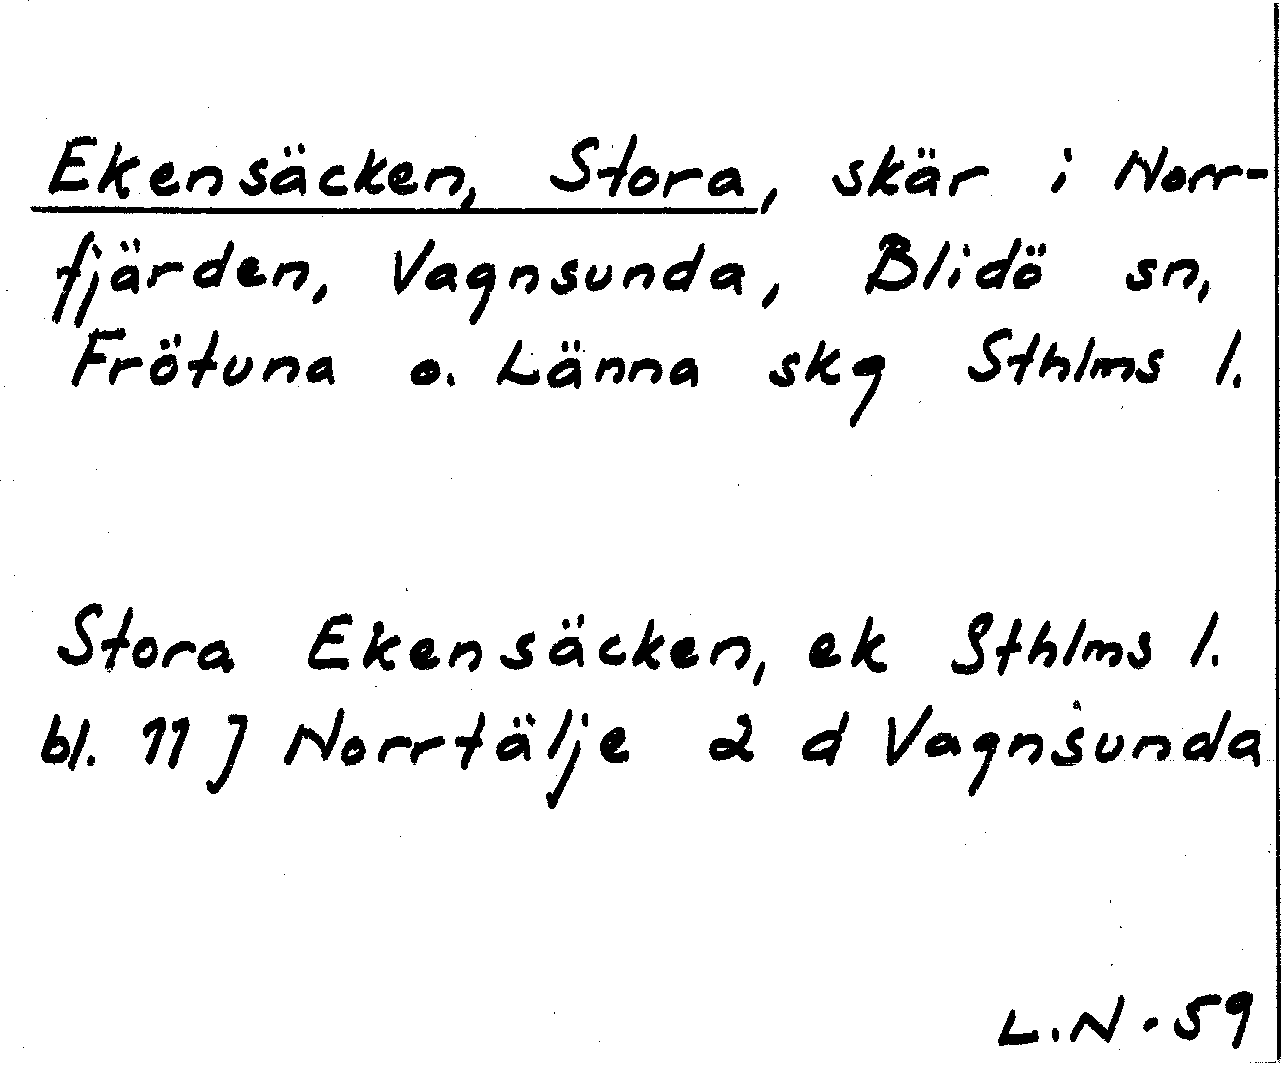 Ekensäcken, Stora, skär i Norr-
fjärden, Vagnsunda, Blidö sn,
Frötuna o. Länna skg Sthlms l.
Stora Ekensäcken, ek Sthlms l.
bl. 11 J Norrtälje 2 d Vagnsunda
L.N.59